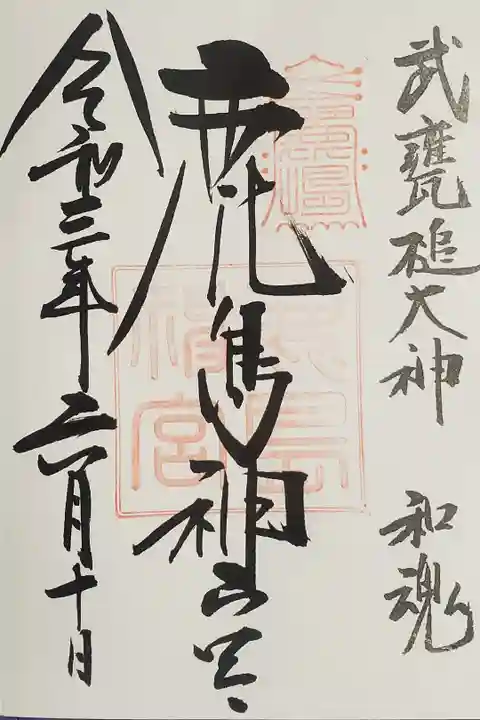 武甕槌大神 和魂
鹿島神宮
令和三年六月十日
鹿島
神宮